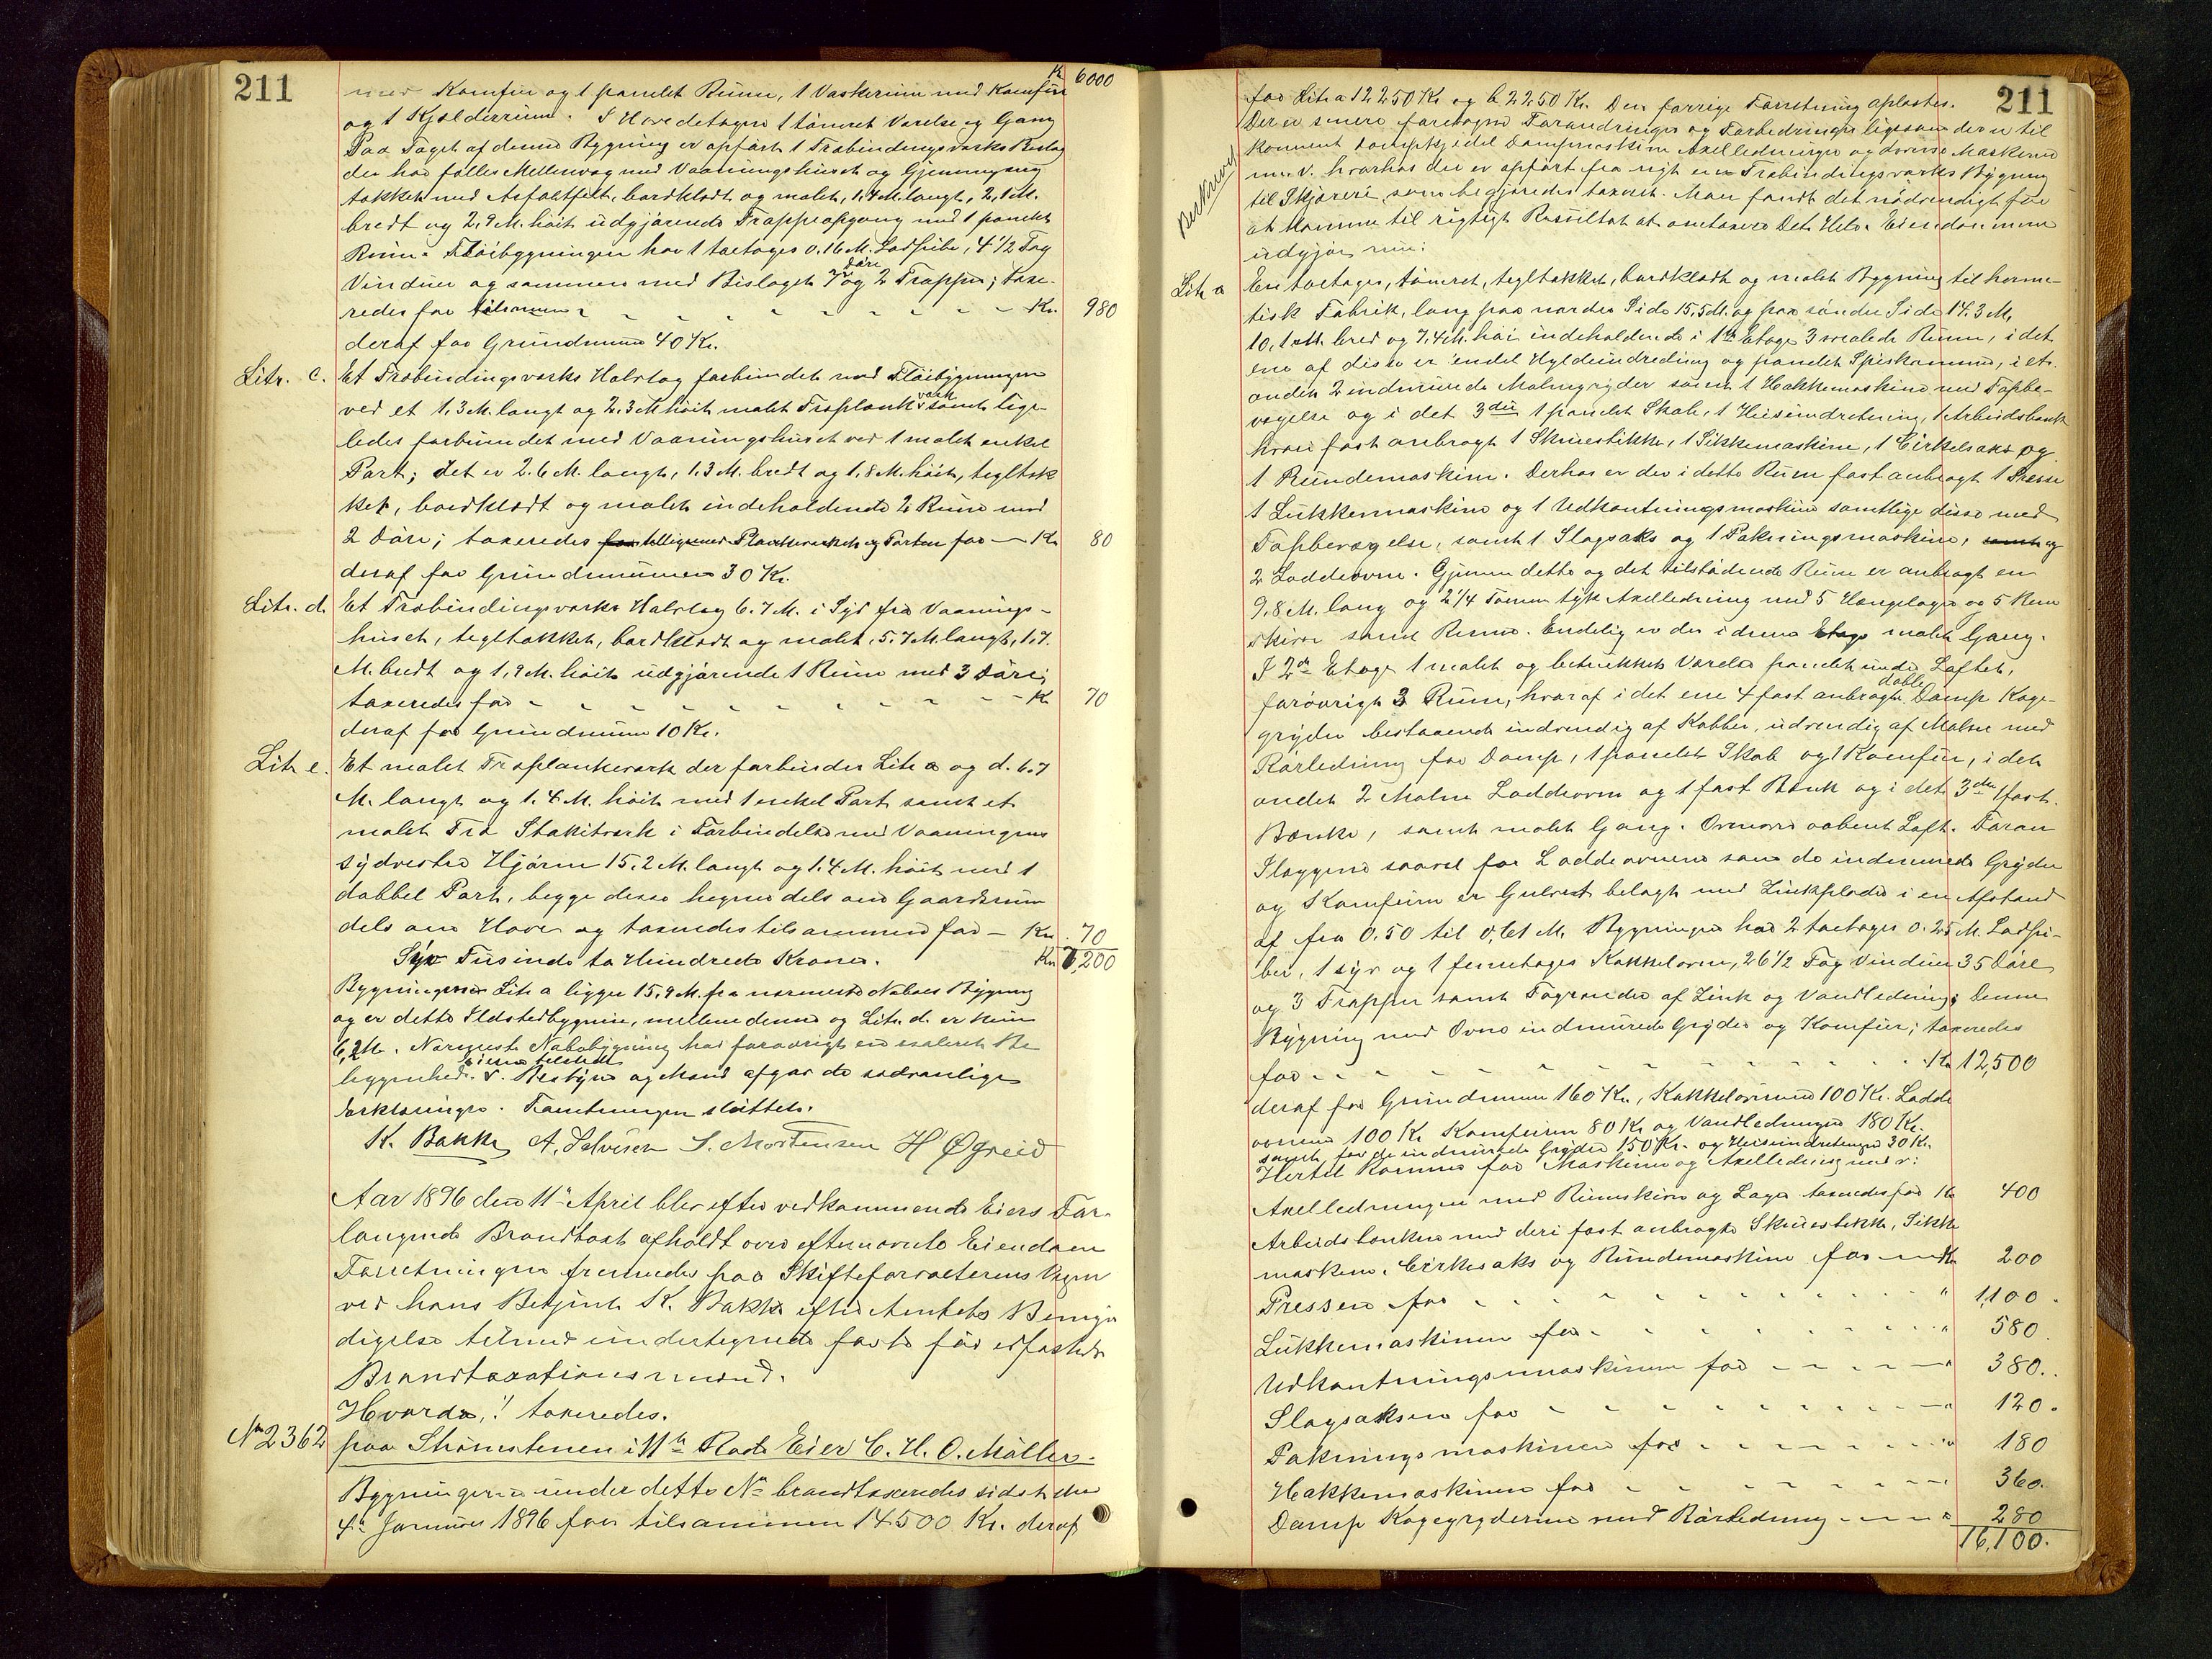 211
Kr 6000
med Komfur og 1 panelet Rum, 1 Vaskerum med Komfur
og 1 Kjælderrum. I Hovedetagen 1 tømret Værelse og Gang
Paa Taget af denne Bygning er opført 1 Træbindingsværks Bislag
der har fælles Mellemvæg med Vaaningshuset og Gjennemgang
tækket med Asfaltfilt, bordklædt og malet, 1,7 M. langt, 2,1 M.
bredt og 2,9 M. höit udgjørende Trappeopgang med 1 panelet
Rum. Flöibygningen har 1 toetages 0.16 M. Ladpibe, 4 1/2 Fag
Vinduer og sammen med Bislaget 7 Döre og 2 Trapper; taxe-
redes for tilsammen - - - Kr. 980
deraf for Grundmuren 40 Kr.
Litr. c. Et Træbindingsværks Halvtag forbundet med Flöibygningen
ved et 1,3 M. langt og 2,3 M höit malet Træplankeværk samt lige-
ledes forbundet med Vaaningshuset ved 1 malet enkel
Port; det er 2.6 M. langt, 1.3 M. bredt og 1,8 M. höit, tegltæk
ket, bordklædt og malet indeholdende 2 Rum med
2 Döre; taxeredes for tilligemed Plankeværket og Porten for - Kr 80
deraf for Grundmuren 30 Kr.
Litr. d. Et Træbindingsværks Halvtag 6.7 M. i Syd fra Vaanings-
huset, tegltækket, bordklædt og malet, 5.7 M langt, 1.7.
M. bredt og 1,9 M. höit udgjørende 1 Rum med 3 Döre;
taxeredes for - - - Kr 70
deraf for Grundmuren 10 Kr.
Litr e. Et malet Træplankeværk der forbinder Litr a og d. 6.7
M. langt og 1.8 M. höit med 1 enkel Port samt et
malet Træ Stakitværk i Forbindelse med Vaaningens
sydvestre Hjørne 15.2 M. langt og 1.4 M. höit med 1
dobbel Port, begge disse hegne dels om Gaardsrum
dels om Have og taxeredes tilsammen for - Kr. 70
Syv Tusinde to Hundrede Kroner. Kr. 7,200
Bygningerne Litr a ligger 15,9 M. fra nærmeste Naboes Bygning
og er dette Ildstedbygning, mellem denne og Litr. d. er kun
6,2 M. Nærmeste Nabobygning har forøvrigt en isoleret Be
liggenhed. Eieren tilstede v. Bestyrer og Mænd afgav de sædvanlige
Erklæringer. Forretningen sluttet.
K. Bakke A. Halvorsen S. Mortensen H Øgreid
Aar 1896 den 11te April blev efter vedkommende Eiers For-
langende Brandtaxt afholdt over eftnævnte Eiendom
Forretningen fremmedes paa Skifteforvalterens Vegne
ved hans Betjent K. Bakke efter Amtets Bemyn
digelse tilmed undertegnede faste før edfæstede
Brandtaxationsmænd.
Hvorda,! taxeredes.
No 2362 paa Strömstenen i 11te Rode Eier C. H. O. Möller.
Bygningerne under dette No brandtaxeredes sidst den
4de Januar 1896 for tilsammen 14500 Kr. deraf
211
for Litr a 12250 Kr og b 2250 Kr. Den forrige Forretning oplæstes.
Der er senere foretagne Forandringer og Forbedringer ligesom der er til
kommet Dampkjedel Dampmaskine Axelledninger og diverse Maskiner
m. v. hvorhos der er opført fra nyt en Træbindingsværks Bygning
til Skjæreri, som begjæredes taxeret. Man fandt det nödvendigt for
at komme til rigtigt Resultat at omtaxere Det Hele. Eiendommen
udgjør nu:
Litr a En toetages, tømret, tegltækket, bordklædt og malet Bygning til herme-
tisk Fabrik, lang paa nordre Side 15,5 M. og paa söndre Side 17.3 M,
10,1 M. bred og 7,4 M. höi indeholdende i 1ste Etage 3 malede Rum, i det
ene af disse er endel Hyldeindredning og panelet Spiskammer, i et
andet 2 indmurede Malmgryder samt 1 Hakkemaskine med Tapbe-
vægelse og i det 3die 1 panelet Skab, 1 Heiseindretning, 1 Arbeidsbænk
hvori fast anbragt 1 Skruestikke, 1 Sikkemaskine, 1 Cirkelsaks og
1 Rundemaskine. Derhos er der i dette Rum fast anbragt 1 Presse
1 Lukkemaskine og 1 Udkantningsmaskine samtlige disse med
Tapbevægelse, samt 1 Slagsaks og 1 Pakningsmaskine, samt og
2 Loddeovne. Gjennem dette og det tilstødende Rum er anbragt en
9,8 M. lang og 2 1/4 Tomme tyk Axelledning med 5 Hængelagre og 5 Rem
skiver samt Remme. Endelig er der i denne Etage malet Gang.
I 2den Etage 1 malet og betrukket Værelse panelet under Loftet,
forövrigt 3 Rum, hvoraf i det ene 4 fast anbragte doble Damp Koge-
gryder bestaaende indvendig af Kobber, udvendig af Malm med
Rörledning for Damp, 1 panelet Skab og 1 Komfur, i det
andet 2 Malm Loddeovne og 1 fast Bænk og i det 3die 1 fast
Bænke, samt malet Gang. Ovenover aabent Loft. Foran
Ilæggene saavel for Loddeovnene som de indmurede Gryder
og Komfuren er Gulvet belagt med Zinkplader i en Afstand
af fra 0.50 til 0,61 M. Bygningen har 2 toetages 0.25 M. Ladpi-
ber, 1 syv og 1 femetages Kakkelovn, 26 1/2 Fag Vinduer 35 Döre
og 3 Trapper samt Tagrender af Zink og Vandledning; Denne
Bygning med Ovne indmurede Gryder og Komfur; taxeredes
for - - - Kr 12,500
deraf for Grundmuren 160 Kr, Kakkelovnene 100 Kr. Lodde
ovnene 100 Kr Komfuren 80 Kr og Vandledningen 180 Kr.
samt for de indmurede Gryder 150 Kr. og Heiseindretningen 30 Kr.
Hertil kommer for Maskiner og Axelledning med v:
Axelledningen med Remskiver og Lager taxeredes for Kr 400
Arbeidsbænken med deri fast anbragte Skruestikke, Sikke
maskine, Cirkesaks og Rundemaskine for - Kr 200
Pressen for - - - " 1,100.
Lukkemaskinen for - - - " 580.
Udkantningsmaskinen for - - - " 380.
Slagsaksen for - - - " 120.
Pakningsmaskinen for - - - " 180
Hakkemaskinen for - - - " 360.
Damp Kogegryderne med Rørledning - - - " 280
16,100.